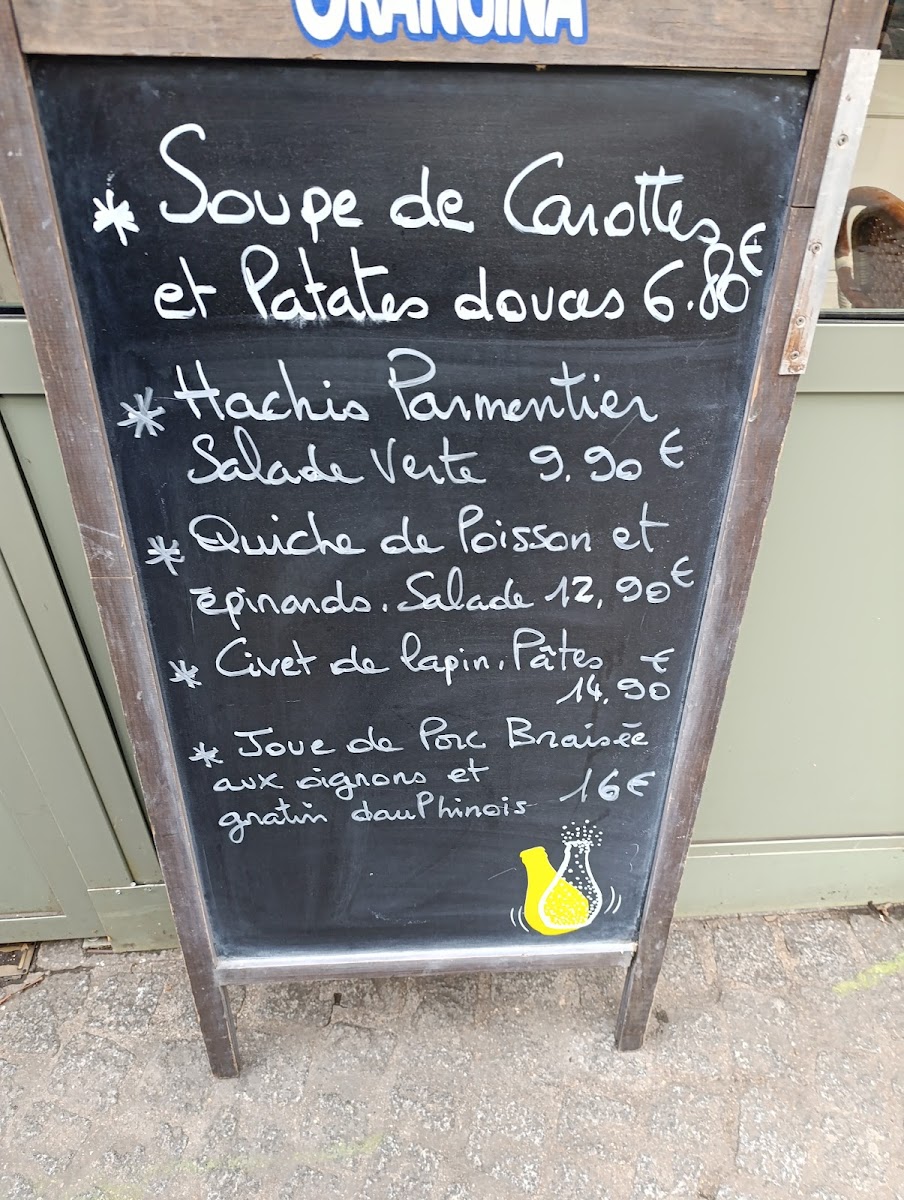 ORANGINA
* Soupe de Carottes
et Patates douces 6.80€
* Hachis Parmentier
Salade Verte 9.90€
* Quiche de Poisson et
épinards. Salade 12,90€
* Civet de lapin. Pâtes €
14,90
* Joue de Porc Braisée
aux oignons et 16€
gratin dauPhinois